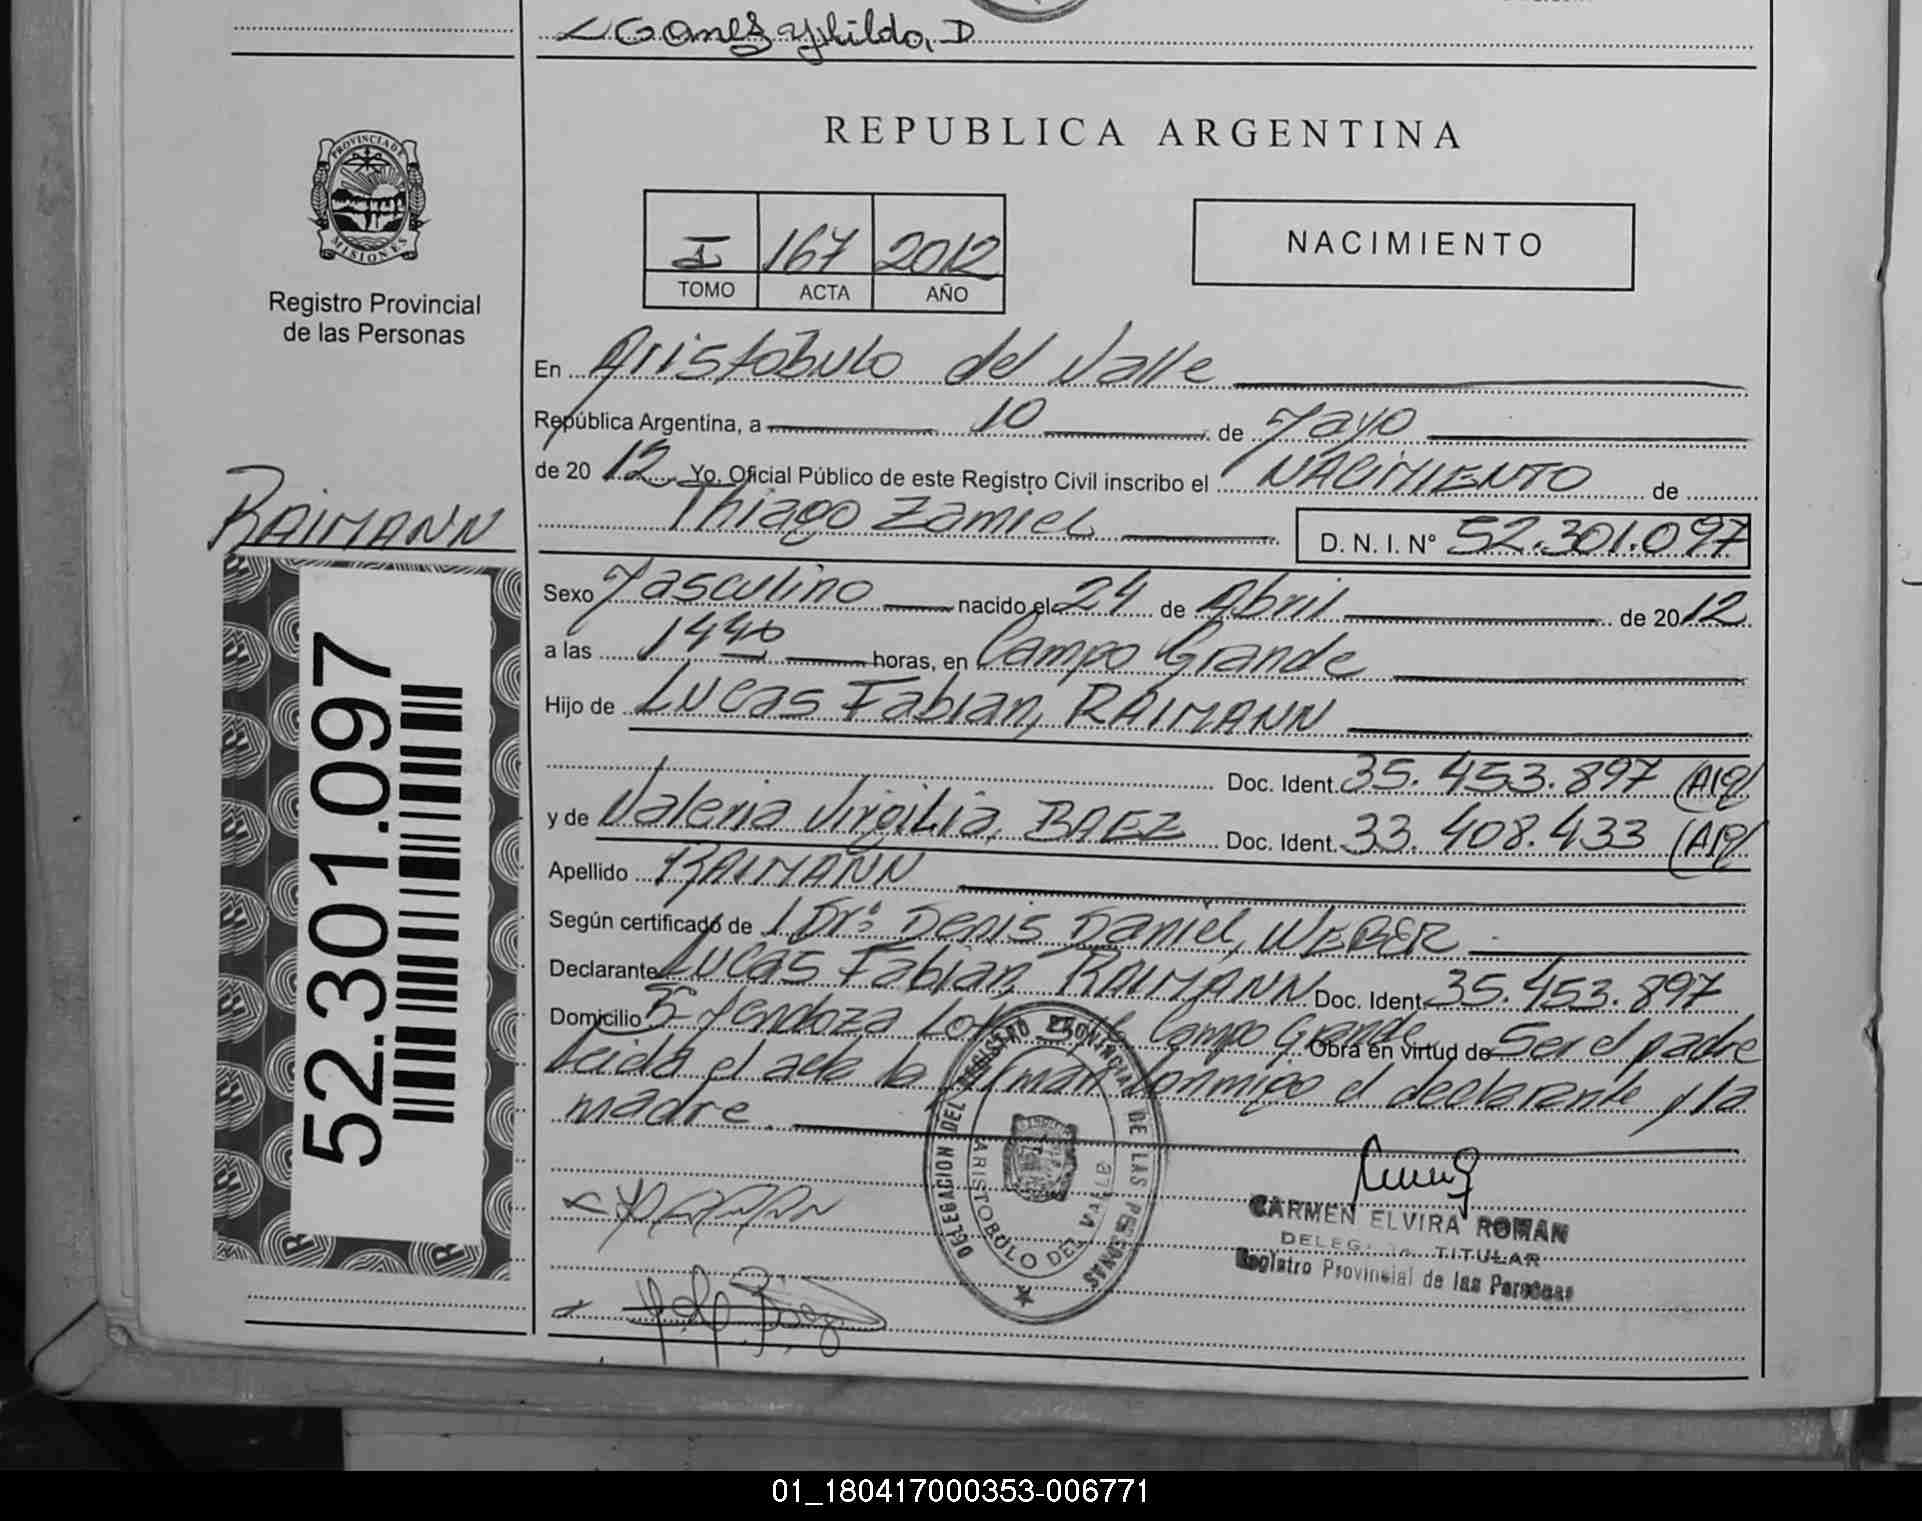 Gomez Yhildo, D
PROVINCIA DE
MISIONES
Registro Provincial
de las Personas
REPUBLICA ARGENTINA
I 167 2012
TOMO ACTA AÑO
NACIMIENTO
En Aristobulo del Valle
República Argentina, a 10 de Mayo
de 20 12 Yo. Oficial Público de este Registro Civil inscribo el NACIMIENTO de
Thiago Zamiel D. N. I. N° 52.301.097
RAIMANN
52.301.097
Sexo Masculino nacido el 24 de Abril de 20 12
a las 14 40 horas, en Campo Grande
Hijo de Lucas Fabian, RAIMANN
Doc. Ident. 35.453.897 (Arg)
y de Valeria Virgilia, BAEZ Doc. Ident. 33.408.433 (Arg)
Apellido RAIMANN
Según certificado de Dr: Denis Daniel, WEBER
Declarante Lucas Fabian, RAIMANN Doc. Ident. 35.453.897
Domicilio Mendoza Campo Grande Obra en virtud de Ser el padre
Leida el acta la firman conmigo el declarante y la
madre.
DELEGACION DEL REGISTRO PROVINCIAL DE LAS PERSONAS
ARISTOBULO DEL VALLE
CARMEN ELVIRA ROMAN
DELEGADA TITULAR
Registro Provincial de las Personas
01_180417000353-006771